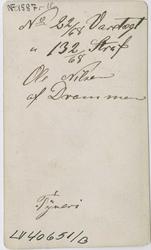 NF.1887-
No 22/68 Varetægt
" 132/68 Straf
Ole Nilsen
af Drammen
Tyveri
LV40651/B